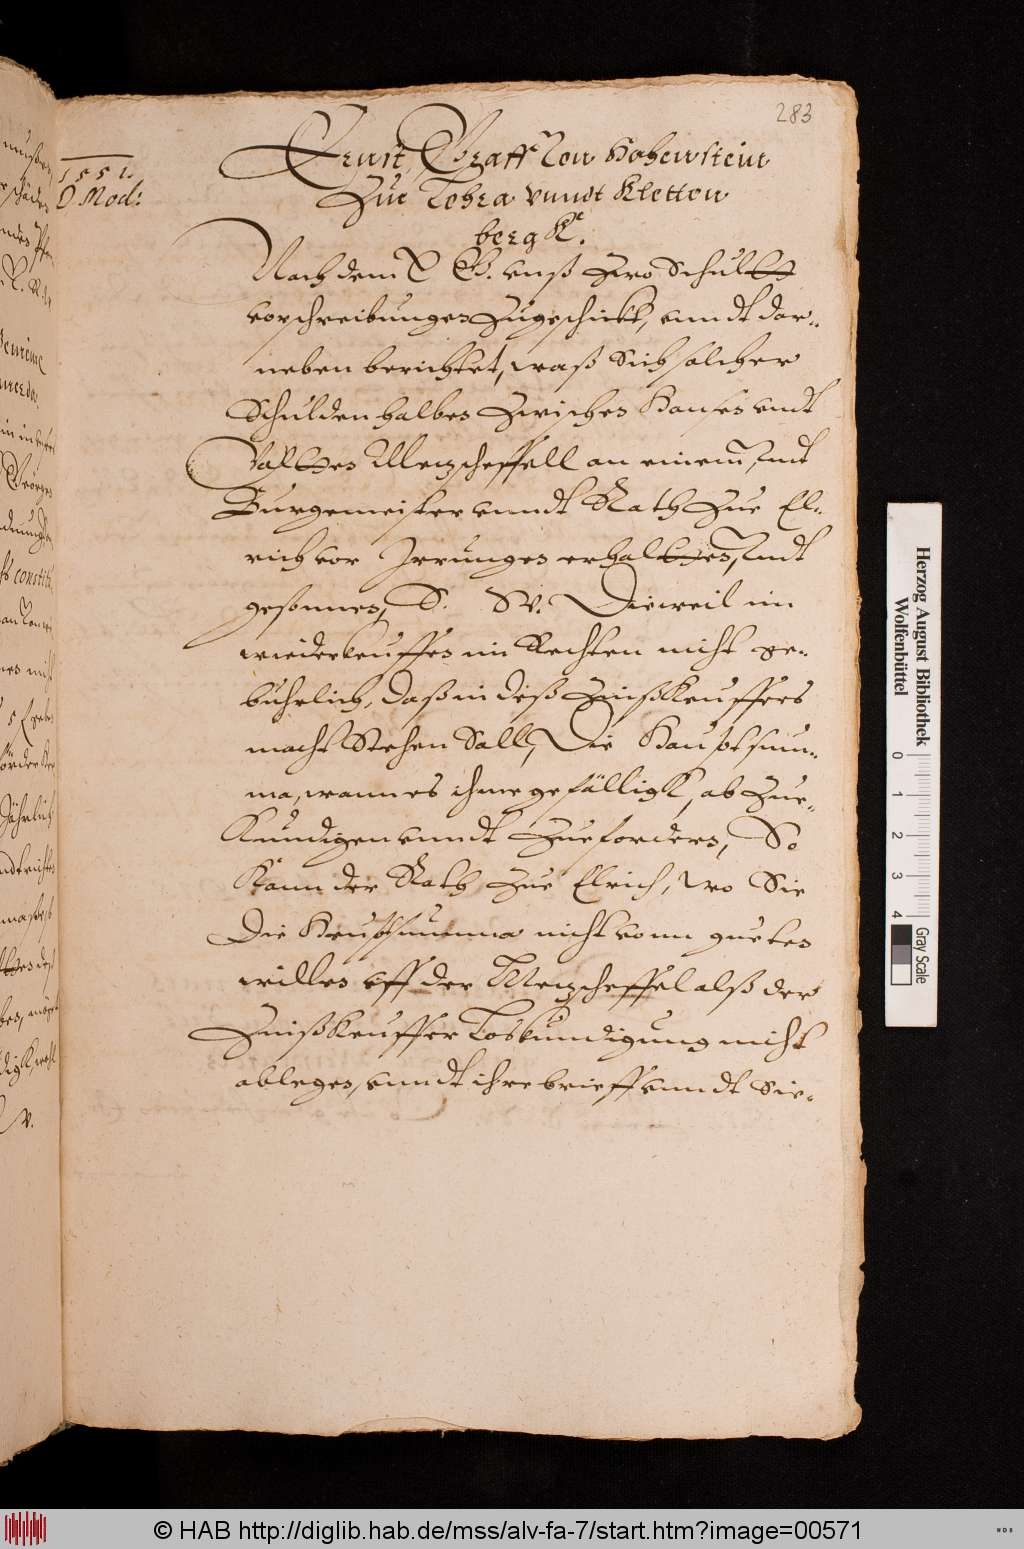 283
1551.
D Mod:
Ernst, Graff Von Hohenstein
Zue Lohra vnndt Kletten
bergk.
Nach dem E G. vnß Zwo Schuldt
vorschreibungen Zugeschickt, vnndt dar-
neben berichtet, waß sich solcher
Schulden halben Zwischen Hansen vndt
Valtten Metzscheffell an einem, vndt
Burgemeister vnndt Rath Zue El-
rich vor Irrungen erhaltten, vndt
gesonnen, S. W. Dieweil im
wiederkeuffen im Rechten nicht ge-
buhrlich, daß in deß Zinßkeuffers
macht Stehen Soll, Die Haubtsum-
ma, wann es ihme gefälligk, ab Zue-
Kundigen vnndt Zue fordern, So
Kann der Rath Zue Elrich, wo Sie
Die Heubtsumma nicht vonn guetes
willen vff der Metzscheffel alß der
Zinßkeuffer Loskundigung nicht
ablegen, vnndt ihre brieff vnndt Sie-
Herzog August Bibliothek
Wolfenbüttel
0 1 2 3 4
Gray Scale
© HAB http://diglib.hab.de/mss/alv-fa-7/start.htm?image=00571